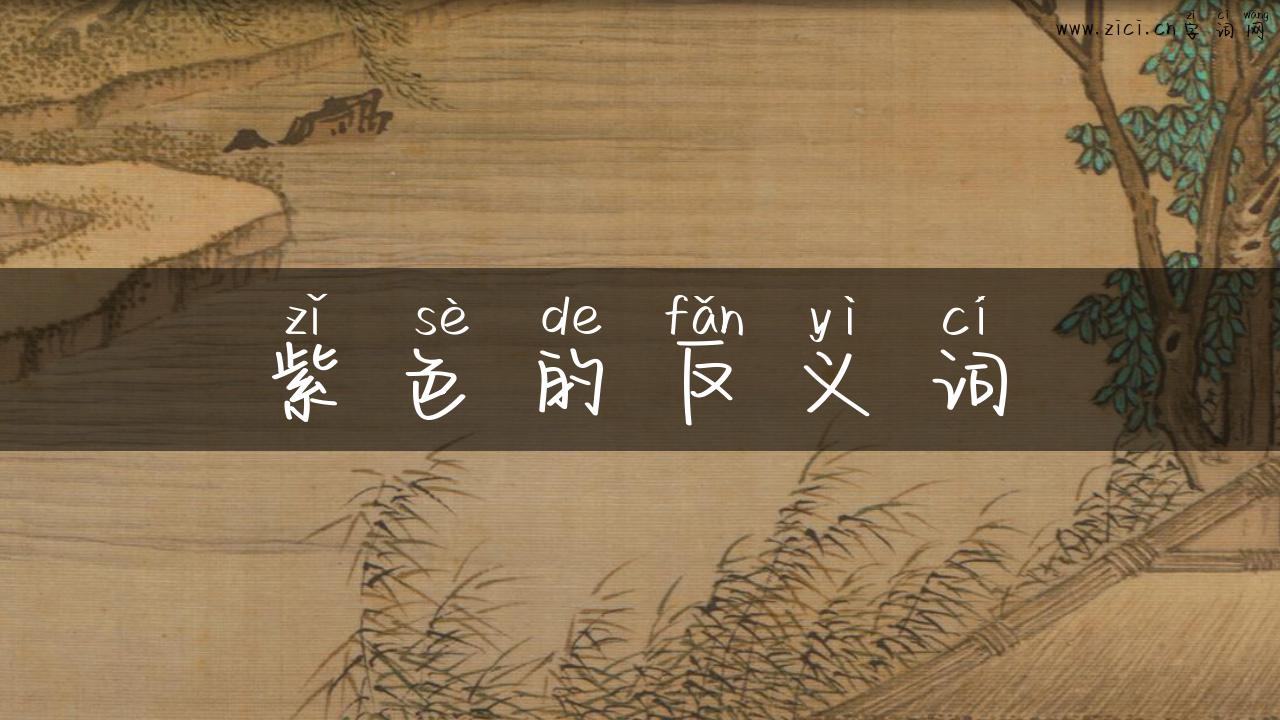 zì cí wǎng
www.zici.cn字词网
zǐ sè de fǎn yì cí
紫色的反义词